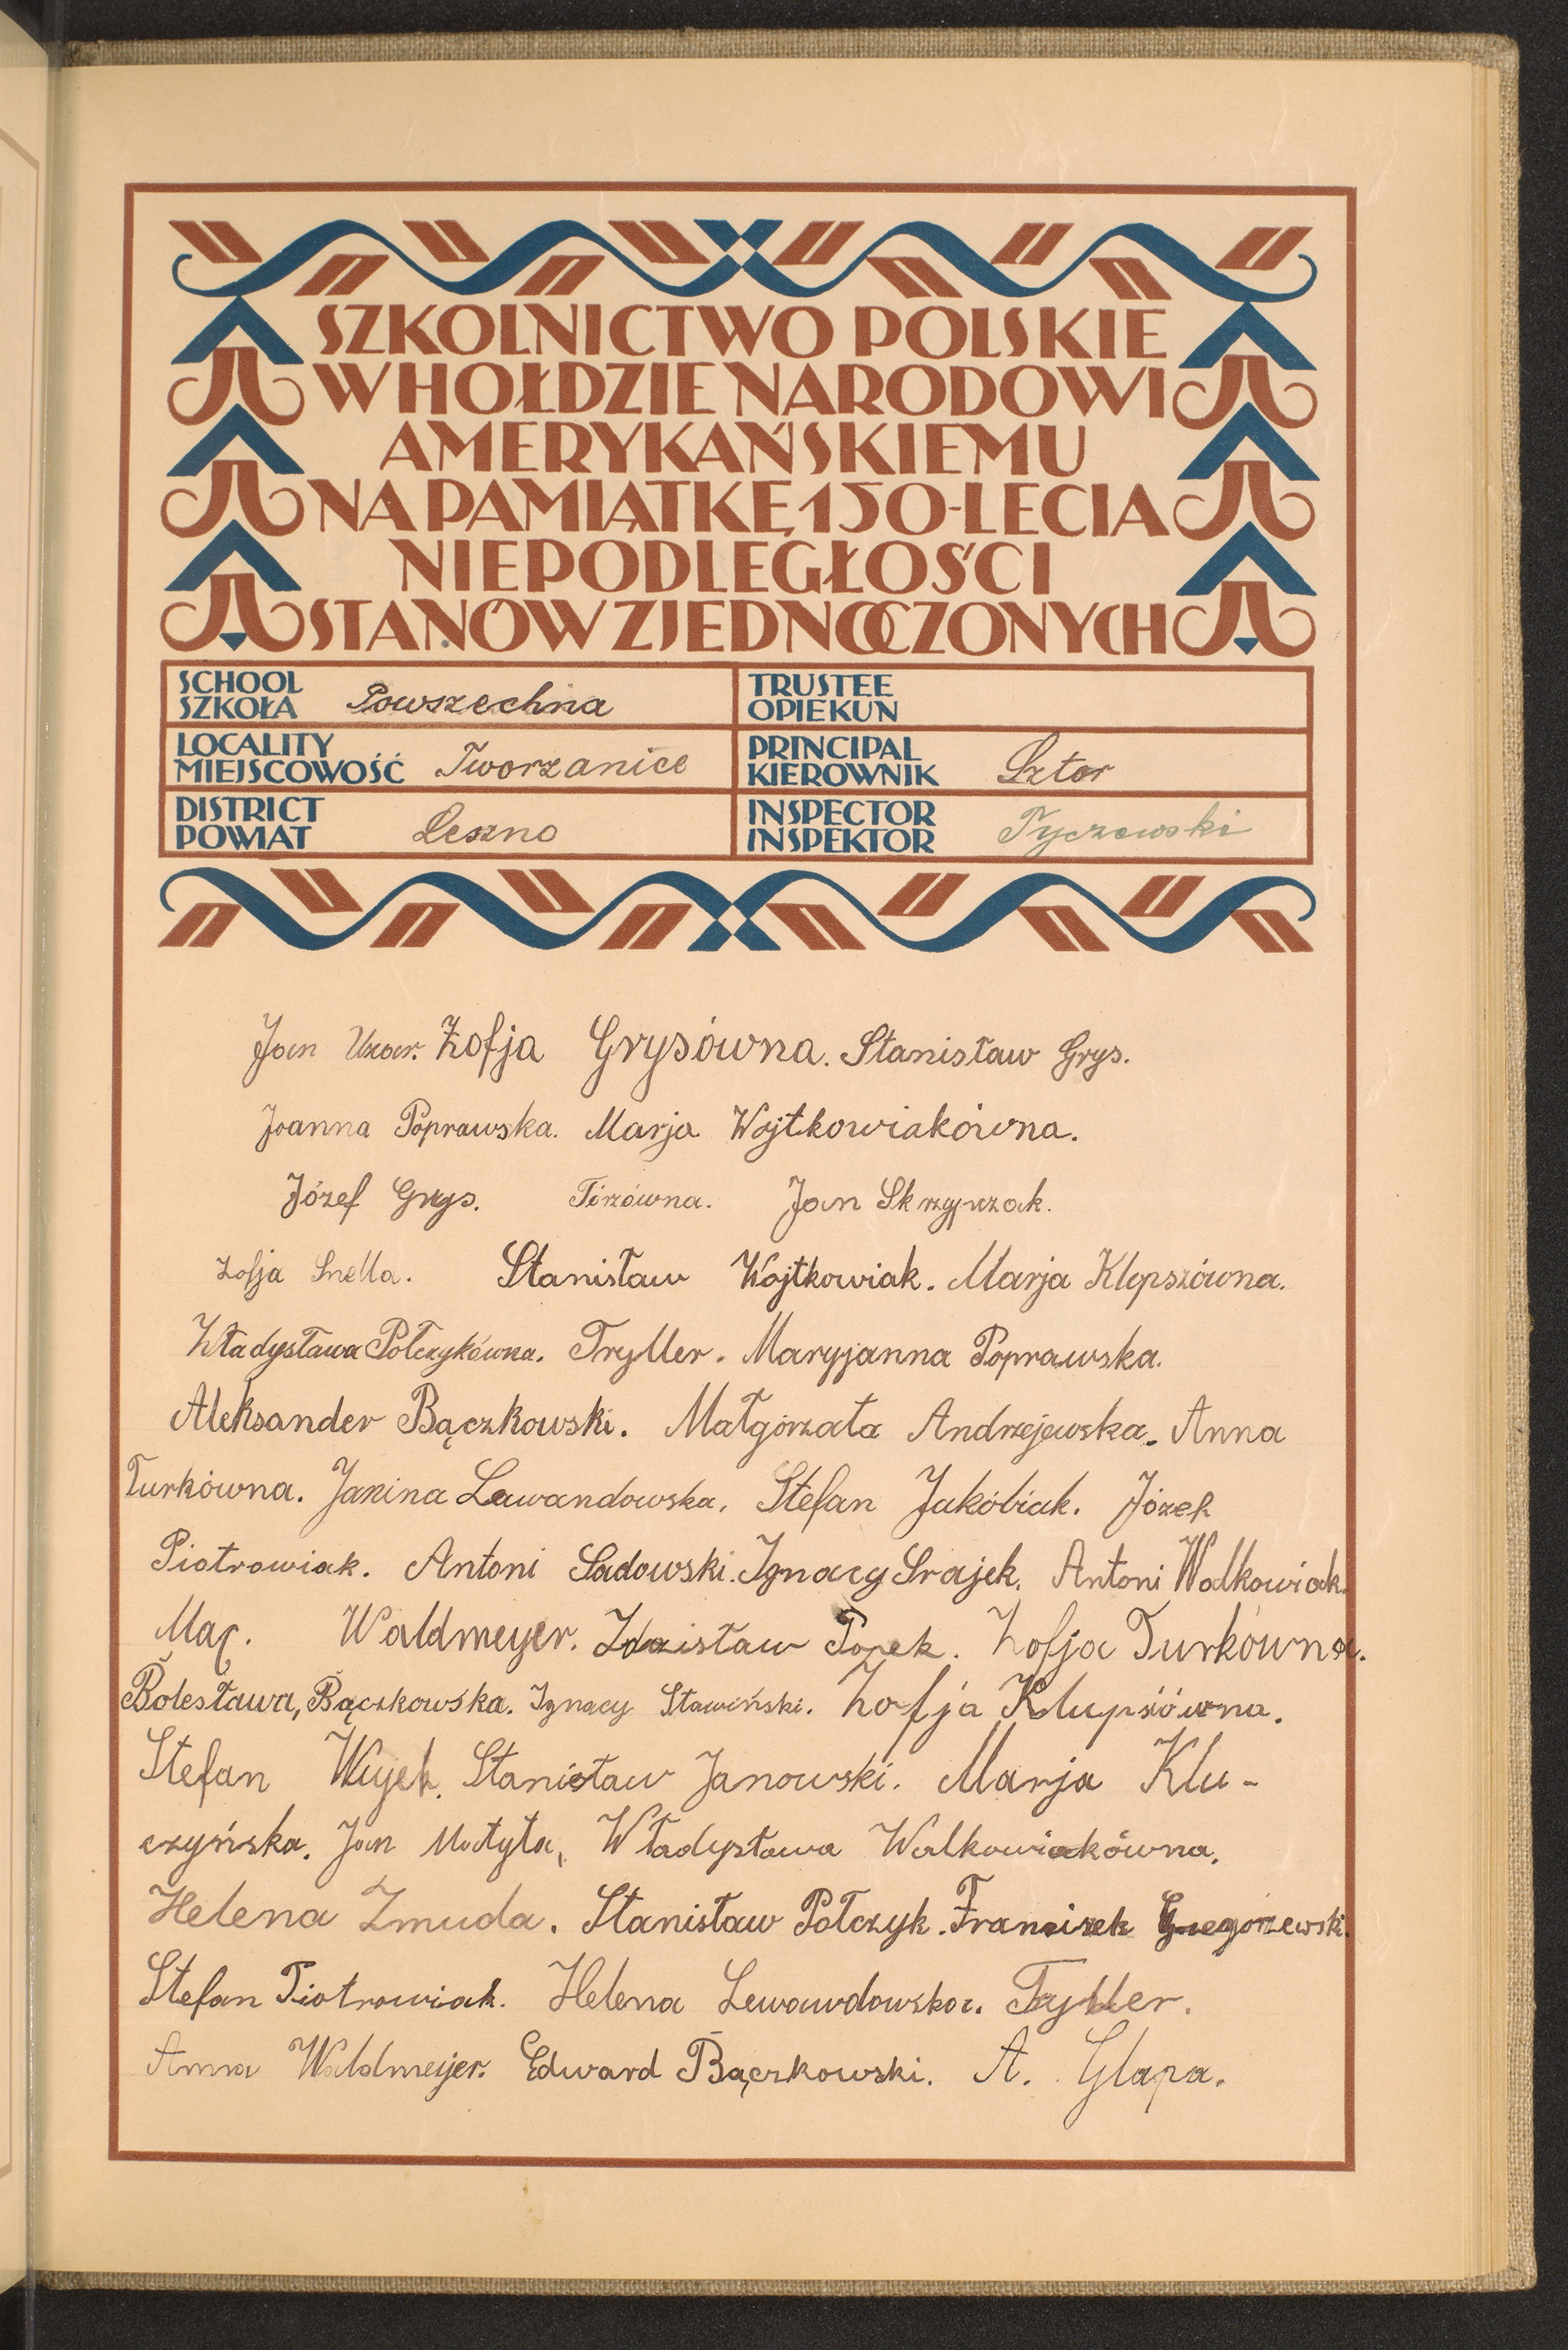 SZKOLNICTWO POLSKIE
W HOŁDZIE NARODOWI
AMERYKAŃSKIEMU
NA PAMIĄTKĘ 150-LECIA
NIEPODLEGŁOŚCI
STANÓW ZJEDNOCZONYCH
SCHOOL
SZKOŁA Powszechna
TRUSTEE
OPIEKUN
LOCALITY
MIEJSCOWOŚĆ Tworzanice
PRINCIPAL
KIEROWNIK Sztor
DISTRICT
POWIAT Leszno
INSPECTOR
INSPEKTOR Tyczewski
Jan Zofja Grysówna. Stanisław Grys.
Joanna Poprawska. Marja Wojtkowiakówna.
Józef Grys. Tórzówna. Jan Skrzypczak.
Zofja Snella. Stanisław Wojtkowiak. Marja Klepszówna.
Władysława Połczykówna. Tryller. Maryjanna Poprawska.
Aleksander Bączkowski. Małgorzata Andrzejewska. Anna
Turkówna. Janina Lawandowska. Stefan Jakóbiak. Józef
Piotrowiak. Antoni Sadowski. Ignacy Srajek. Antoni Walkowiak.
Waldmeyer. Zdzisław Popek. Zofja Turkówna.
Bolesława, Bączkowska. Ignacy Stawiński. Zofja Klupsówna.
Stefan Wujek. Stanisław Janowski. Marja Klu-
czyńska. Jan Matyla, Władysława Walkowiakówna.
Helena Zmuda. Stanisław Połczyk. Franciszek Gregorzewski.
Stefan Piotrowiak. Helena Lewawdowska. Tryller.
Anna Waldmeijer. Edward Bączkowski. A. Glapa.